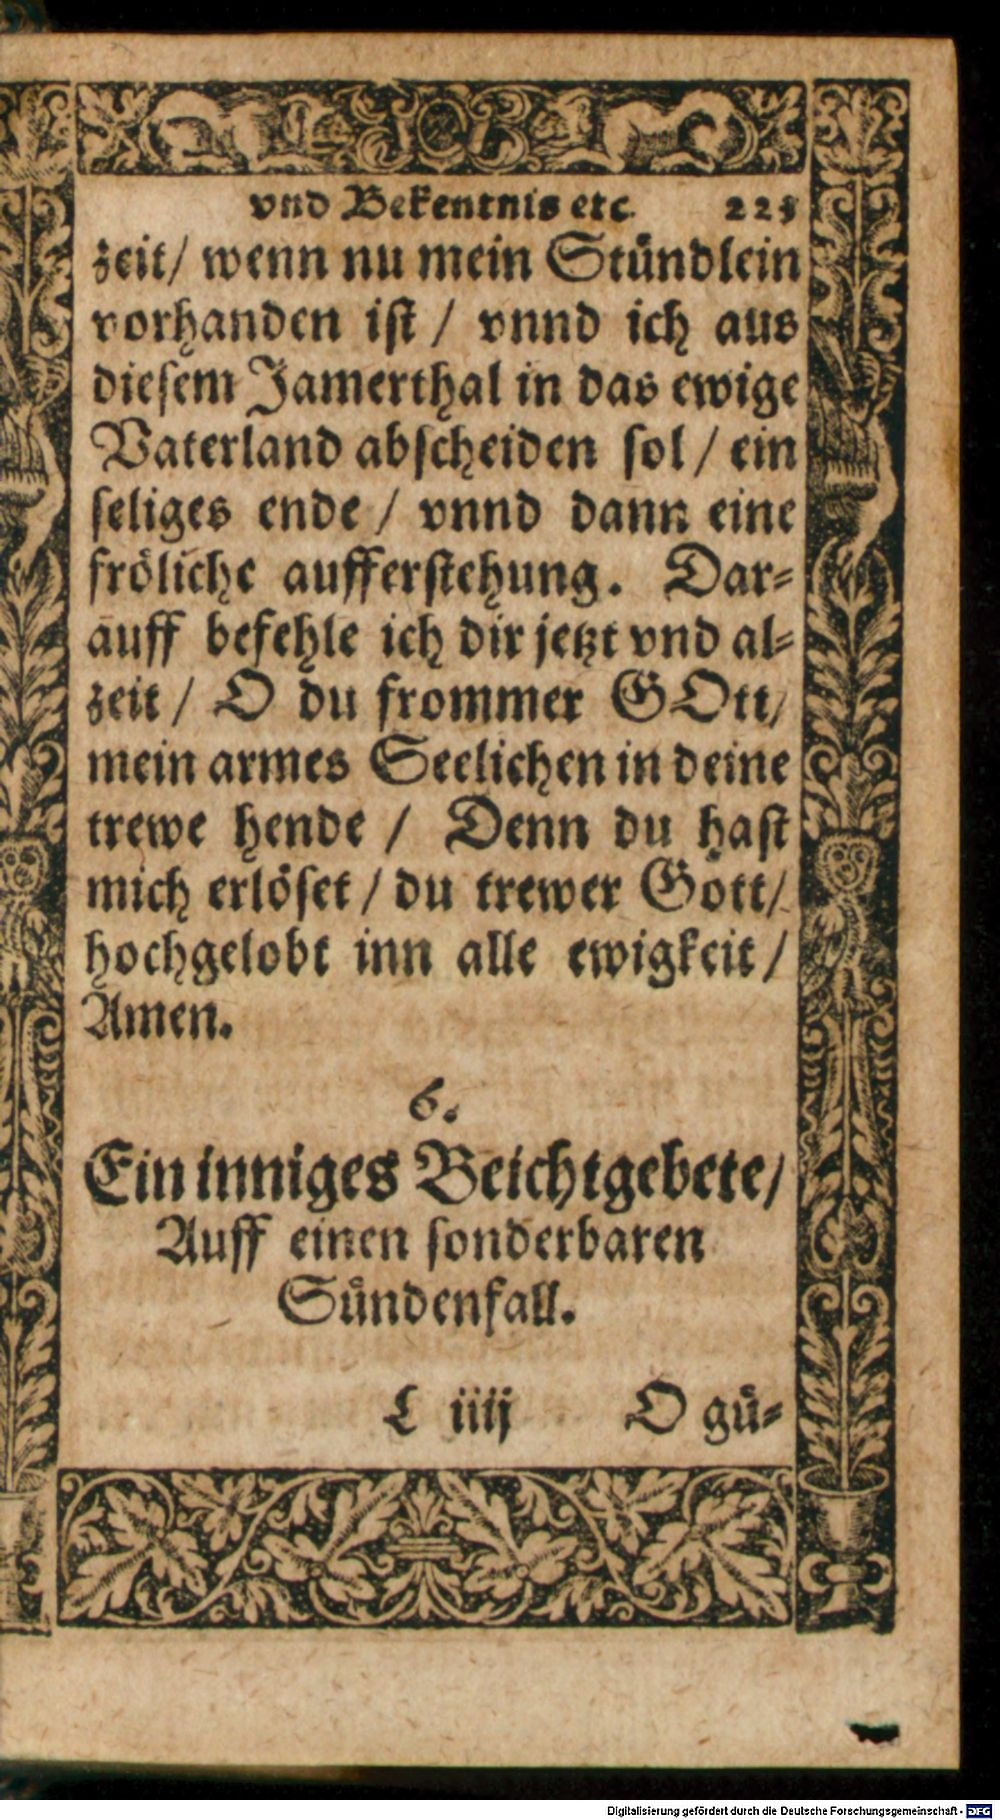 vnd Bekentnis etc. 225
zeit/ wenn nu mein Stündlein
vorhanden ist / vnnd ich aus
diesem Jamerthal in das ewige
Vaterland abscheiden sol / ein
seliges ende / vnnd dann eine
fröliche aufferstehung. Dar-
auff befehle ich dir jetzt vnd al-
zeit / O du frommer GOtt/
mein armes Seelichen in deine
trewe hende / Denn du hast
mich erlöset / du trewer Gott/
hochgelobt inn alle ewigkeit /
Amen.
6.
Ein inniges Beichtgebete/
Auff einen sonderbaren
Sündenfall.
L iiij O gü-
Digitalisierung gefördert durch die Deutsche Forschungsgemeinschaft - DFG